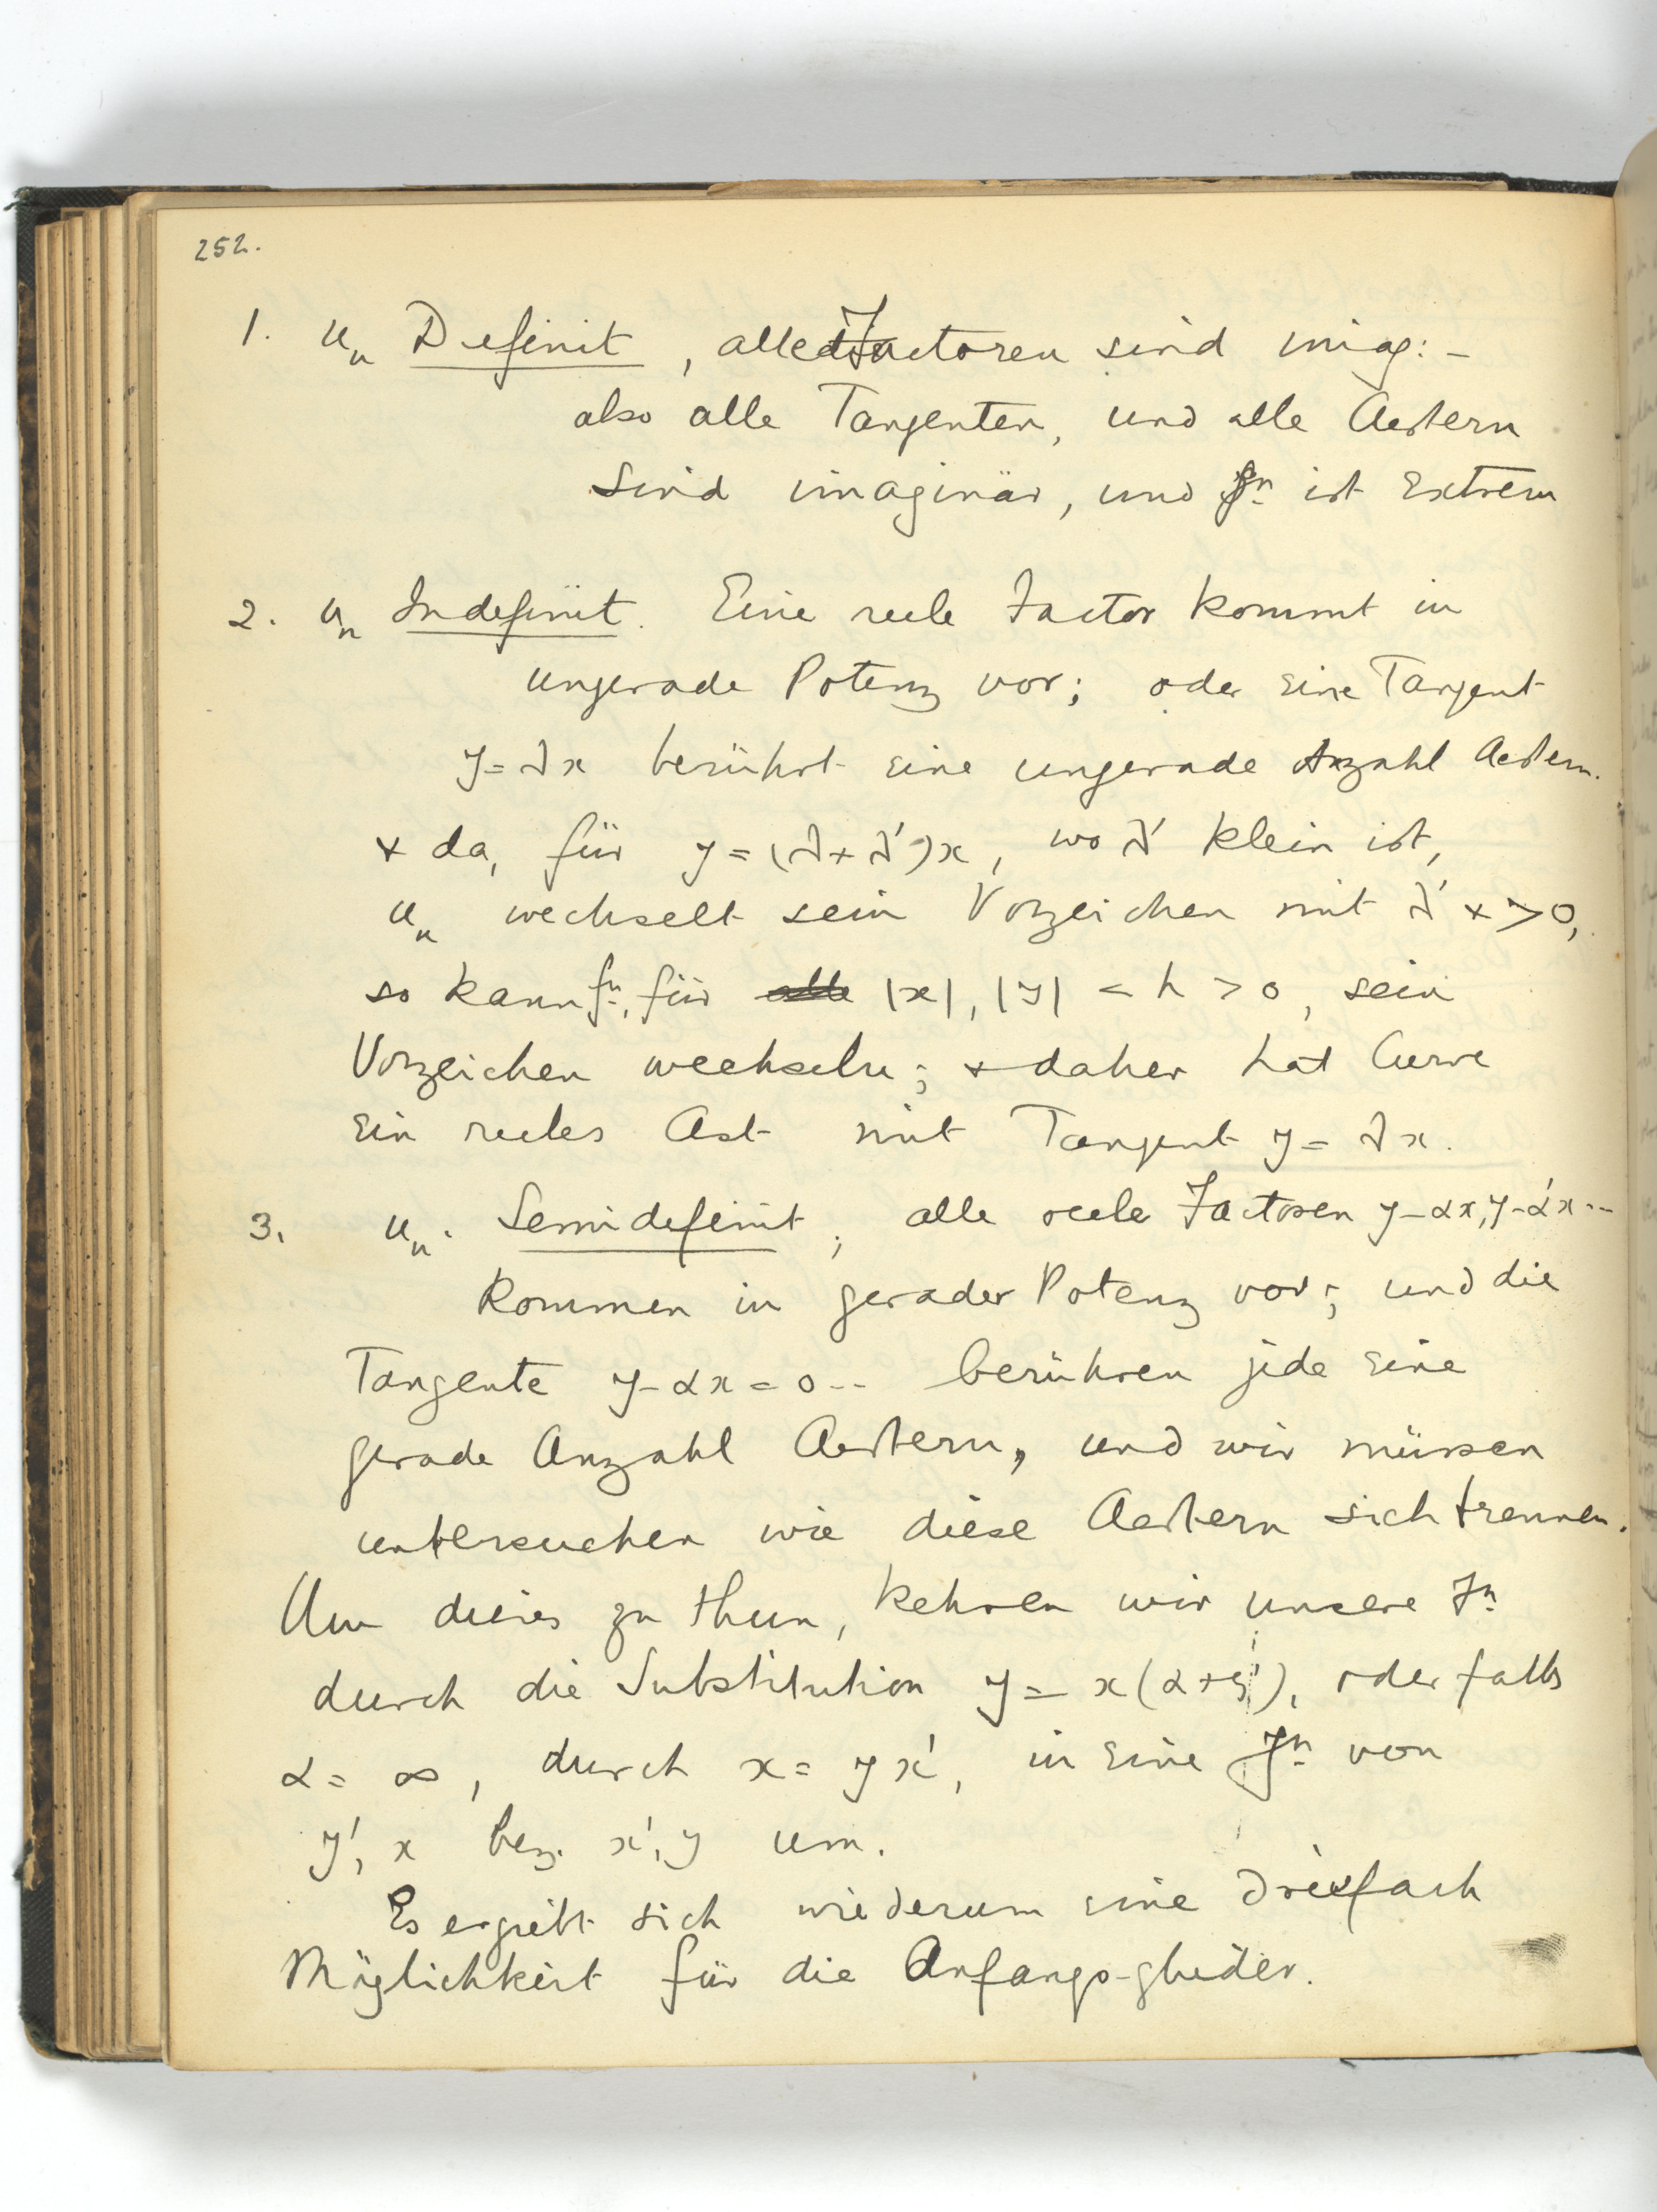 252.
1. u_n Definit, alle Factoren sind imag: –
also alle Tangenten, und alle Aestern
sind imaginär, und fn. ist Extrem
2. u_n Indefinit. Eine reele Factor kommt in
ungerade Potenz vor; oder eine Tangent
y = λx berührt eine ungerade Anzahl Aestern.
+ da, für y = (λ + λ')x, wo λ' klein ist,
u_n wechselt sein Vorzeichen mit λ' x > 0,
so kann fn., für alle |x|, |y| < h > 0, sein
Vorzeichen wechseln; + daher hat Curve
ein reeles Ast mit Tangent y = λx.
3. u_n. Semidefinit; alle reele Factoren y-αx, y-α'x...
kommen in gerader Potenz vor; und die
Tangente y-αx = 0 -- berühren jede eine
gerade Anzahl Aestern, und wir müssen
untersuchen wie diese Aestern sich trennen.
Um dieses zu thun, kehren wir unsere Fn.
durch die Substitution y = x(α+y'), oder falls
α = ∞, durch x = yx', in eine Fn. von
y', x bez. x', y um.
Es ergiebt sich wiederum eine dreifach
Möglichkeit für die Anfangs-glieder.